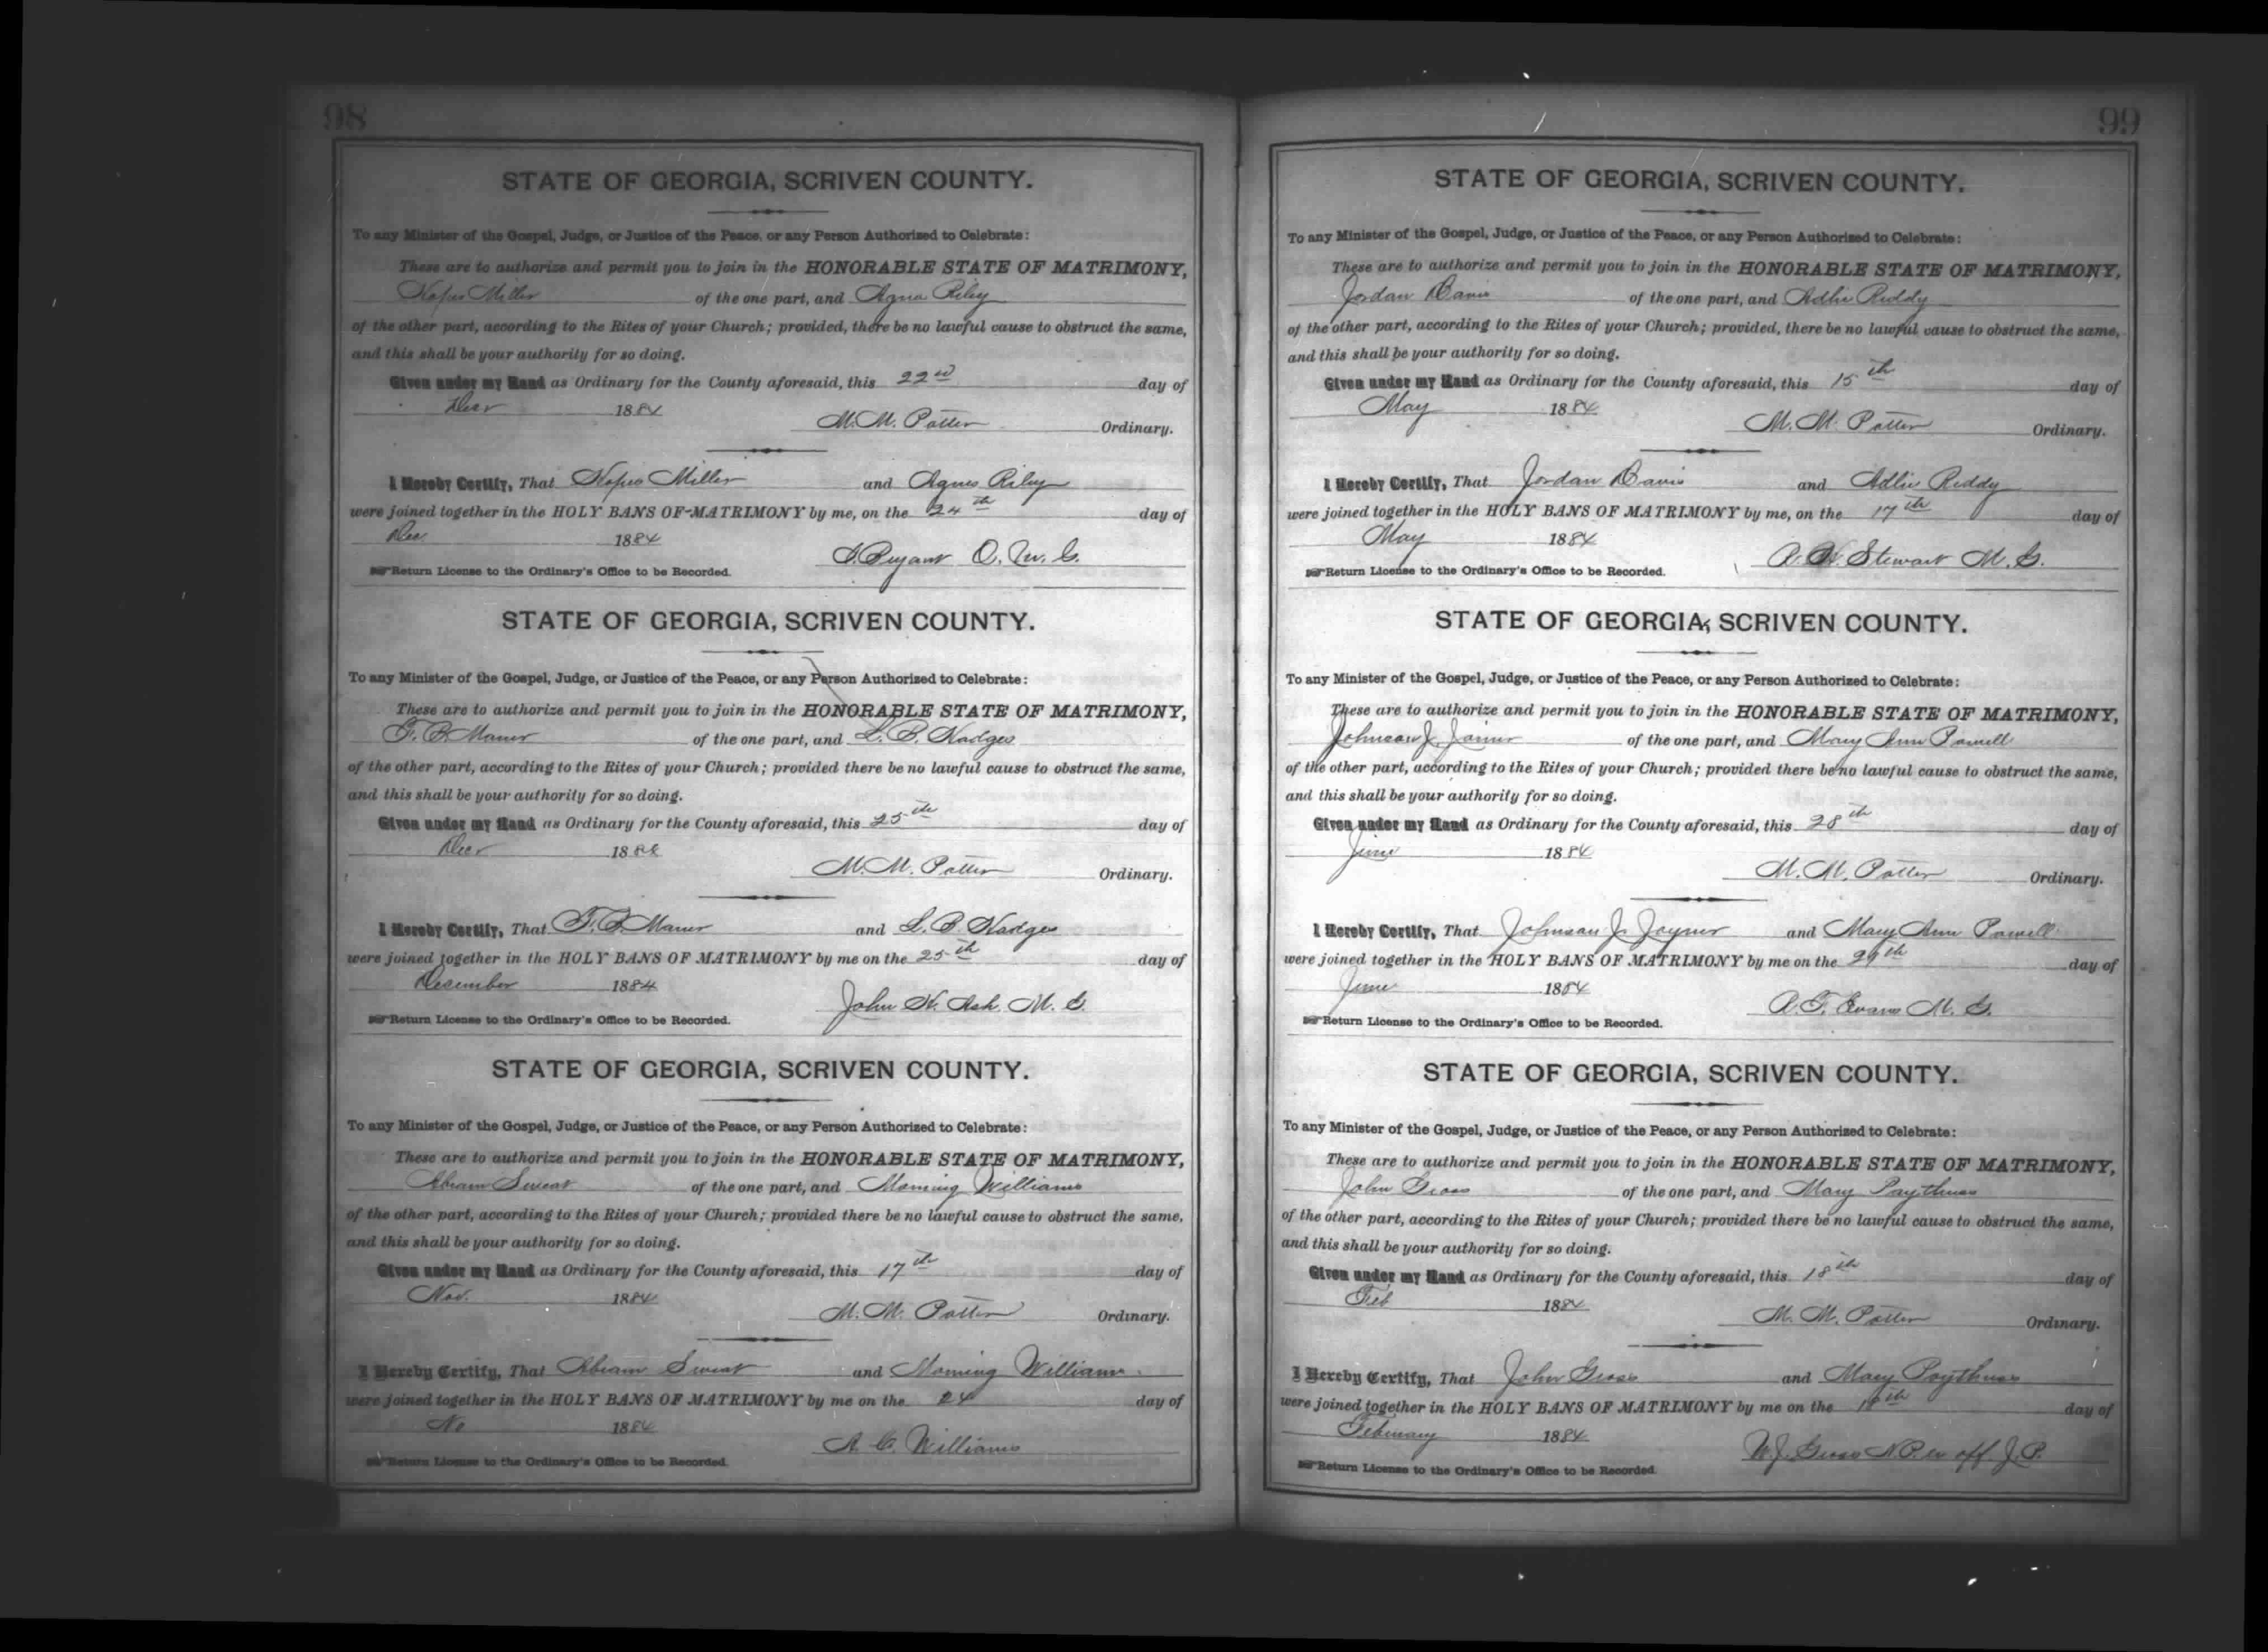 98
STATE OF GEORGIA, SCRIVEN COUNTY.
To any Minister of the Gospel, Judge, or Justice of the Peace, or any Person Authorized to Celebrate:
These are to authorize and permit you to join in the HONORABLE STATE OF MATRIMONY,
Miller of the one part, and Agna Riley
of the other part, according to the Rites of your Church; provided, there be no lawful cause to obstruct the same,
and this shall be your authority for so doing.
Given under my Hand as Ordinary for the County aforesaid, this 22nd day of
Decr 1884
M. M. Potter Ordinary.
I Hereby Certify, That Miller and Agnes Riley
were joined together in the HOLY BANS OF MATRIMONY by me, on the 24th day of
Dec 1884
Bryant O. M. G.
Return License to the Ordinary's Office to be Recorded.
STATE OF GEORGIA, SCRIVEN COUNTY.
To any Minister of the Gospel, Judge, or Justice of the Peace, or any Person Authorized to Celebrate:
These are to authorize and permit you to join in the HONORABLE STATE OF MATRIMONY,
F. B. Maner of the one part, and L. B. Hodges
of the other part, according to the Rites of your Church; provided there be no lawful cause to obstruct the same,
and this shall be your authority for so doing.
Given under my Hand as Ordinary for the County aforesaid, this 25th day of
Decr 1884
M. M. Potter Ordinary.
I Hereby Certify, That F. B. Maner and L. B. Hodges
were joined together in the HOLY BANS OF MATRIMONY by me on the 25th day of
December 1884
John H. Ash. M. G.
Return License to the Ordinary's Office to be Recorded.
STATE OF GEORGIA, SCRIVEN COUNTY.
To any Minister of the Gospel, Judge, or Justice of the Peace, or any Person Authorized to Celebrate:
These are to authorize and permit you to join in the HONORABLE STATE OF MATRIMONY,
Abram Sweat of the one part, and Morning Williams
of the other part, according to the Rites of your Church; provided there be no lawful cause to obstruct the same,
and this shall be your authority for so doing.
Given under my Hand as Ordinary for the County aforesaid, this 17th day of
Nov. 1884
M. M. Potter Ordinary.
I Hereby Certify, That Abram Sweat and Morning Williams
were joined together in the HOLY BANS OF MATRIMONY by me on the 24 day of
No 1884
A. C. Williams
Return License to the Ordinary's Office to be Recorded.
99
STATE OF GEORGIA, SCRIVEN COUNTY.
To any Minister of the Gospel, Judge, or Justice of the Peace, or any Person Authorized to Celebrate:
These are to authorize and permit you to join in the HONORABLE STATE OF MATRIMONY,
Jordan Davis of the one part, and Adlie Reddy
of the other part, according to the Rites of your Church; provided, there be no lawful cause to obstruct the same,
and this shall be your authority for so doing.
Given under my Hand as Ordinary for the County aforesaid, this 15th day of
May 1884
M. M. Potter Ordinary.
I Hereby Certify, That Jordan Davis and Adlie Reddy
were joined together in the HOLY BANS OF MATRIMONY by me, on the 17th day of
May 1884
Stewart M. G.
Return License to the Ordinary's Office to be Recorded.
STATE OF GEORGIA, SCRIVEN COUNTY.
To any Minister of the Gospel, Judge, or Justice of the Peace, or any Person Authorized to Celebrate:
These are to authorize and permit you to join in the HONORABLE STATE OF MATRIMONY,
Johnson J. Joiner of the one part, and Mary Ann Powell
of the other part, according to the Rites of your Church; provided there be no lawful cause to obstruct the same,
and this shall be your authority for so doing.
Given under my Hand as Ordinary for the County aforesaid, this 28th day of
June 1884
M. M. Potter Ordinary.
I Hereby Certify, That Johnson J. Joyner and Mary Ann Powell
were joined together in the HOLY BANS OF MATRIMONY by me on the 29th day of
June 1884
Evans M. G.
Return License to the Ordinary's Office to be Recorded.
STATE OF GEORGIA, SCRIVEN COUNTY.
To any Minister of the Gospel, Judge, or Justice of the Peace, or any Person Authorized to Celebrate:
These are to authorize and permit you to join in the HONORABLE STATE OF MATRIMONY,
John Gross of the one part, and Mary Paythress
of the other part, according to the Rites of your Church; provided there be no lawful cause to obstruct the same,
and this shall be your authority for so doing.
Given under my Hand as Ordinary for the County aforesaid, this 18th day of
Feb 1884
M. M. Potter Ordinary.
I Hereby Certify, That John Gross and Mary Poythress
were joined together in the HOLY BANS OF MATRIMONY by me on the day of
February 1884
W. J. Gross N. P. ex off. J. P.
Return License to the Ordinary's Office to be Recorded